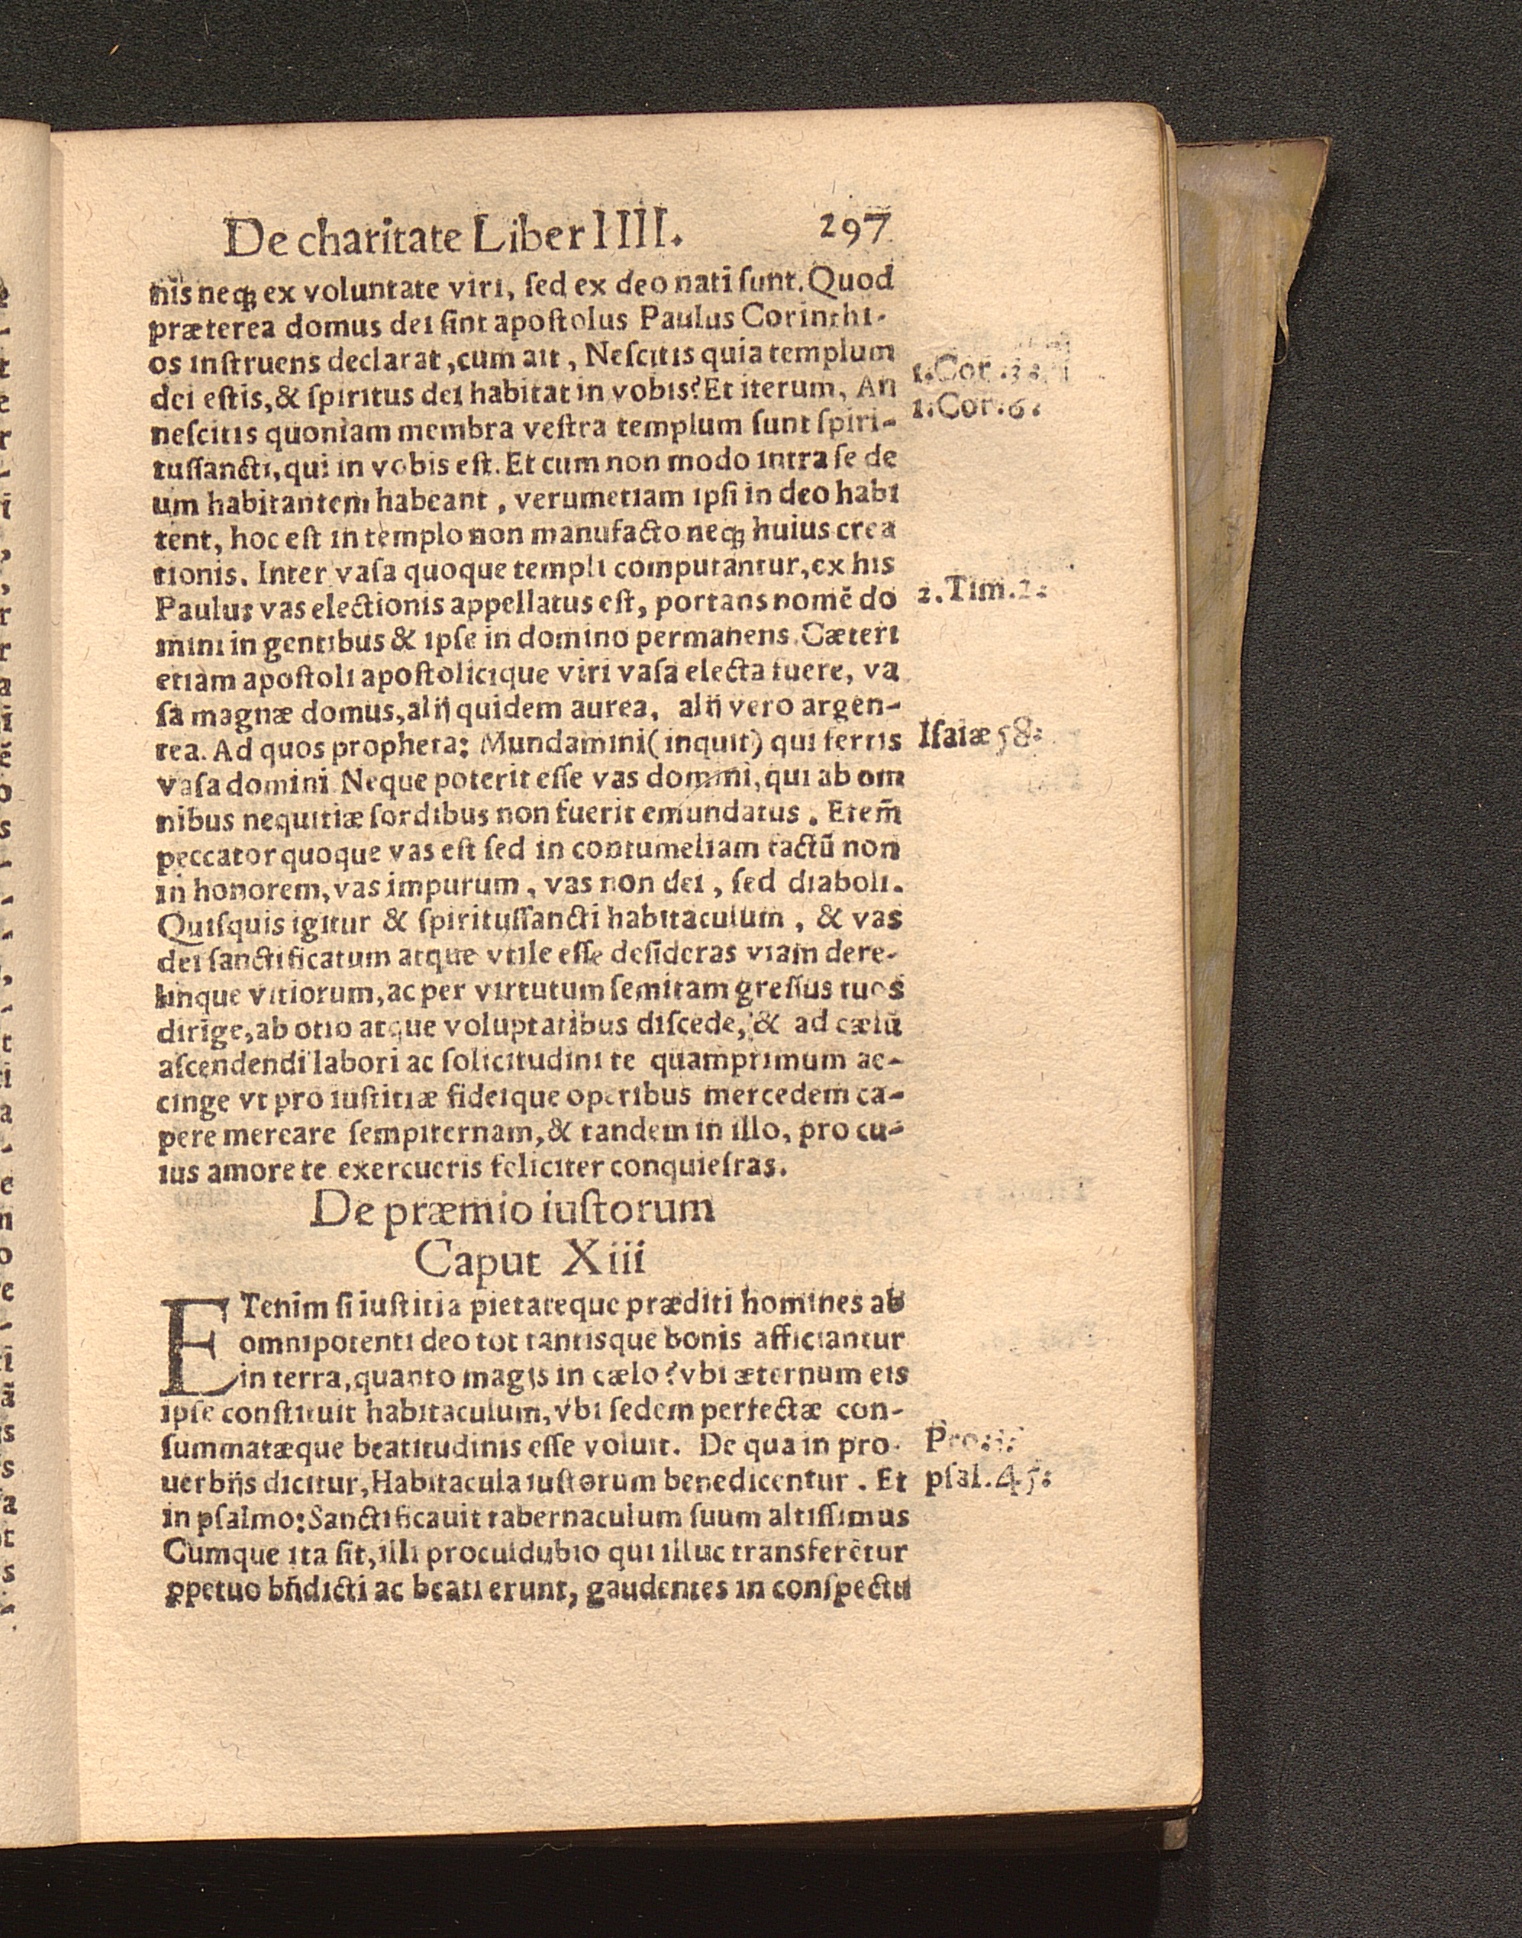 De charitate Liber IIII. 297
nis neqꝫ ex voluntate viri, ſed ex deo nati ſunt. Quod
præterea domus dei ſint apoſtolus Paulus Corinthi-
os inſtruens declarat, cum ait, Neſcitis quia templum
dei eſtis, & ſpiritus dei habitat in vobis? Et iterum, An
neſcitis quoniam membra veſtra templum ſunt ſpiri-
tuſſancti, qui in vobis eſt. Et cum non modo intra ſe de
um habitantem habeant, verumetiam ipſi in deo habi
tent, hoc eſt in templo non manufacto neqꝫ huius crea
tionis. Inter vaſa quoque templi computantur, ex his
Paulus vas electionis appellatus eſt, portans nomē do
mini in gentibus & ipſe in domino permanens. Cæteri
etiam apoſtoli apoſtolicique viri vaſa electa fuere, va
ſa magnæ domus, alij quidem aurea, alij vero argen-
tea. Ad quos propheta: Mundamini (inquit) qui fertis
vaſa domini Neque poterit eſſe vas domini, qui ab om
nibus nequitiæ ſordibus non fuerit emundatus. Etem̄
peccator quoque vas eſt ſed in contumeliam factū non
in honorem, vas impurum, vas non dei, ſed diaboli.
Quiſquis igitur & ſpirituſſancti habitaculum, & vas
dei ſanctificatum atque vtile eſſe deſideras viam dere-
linque vitiorum, ac per virtutum ſemitam greſſus tuos
dirige, ab otio atque voluptatibus diſcede, & ad cælū
aſcendendi labori ac ſolicitudini te quamprimum ac-
cinge vt pro iuſtitiæ fideique operibus mercedem ca-
pere mercare ſempiternam, & tandem in illo, pro cu-
ius amore te exercueris feliciter conquieſcas.
De præmio iuſtorum
Caput Xiii
ETenim ſi iuſtitia pietateque præditi homines ab
omnipotenti deo tot tantisque bonis afficiantur
in terra, quanto magis in cælo? vbi æternum eis
ipſe conſtituit habitaculum, vbi ſedem perfectæ con-
ſummatæque beatitudinis eſſe voluit. De qua in pro-
uerbijs dicitur, Habitacula iuſtorum benedicentur. Et
in pſalmo: Sanctificauit tabernaculum ſuum altiſſimus
Cumque ita ſit, illi proculdubio qui illuc transferētur
ꝑpetuo bn̄dicti ac beati erunt, gaudentes in conſpectu
1. Cor. 3:
1. Cor. 6:
2. Tim. 2:
Iſaiæ 58:
pſal. 45: